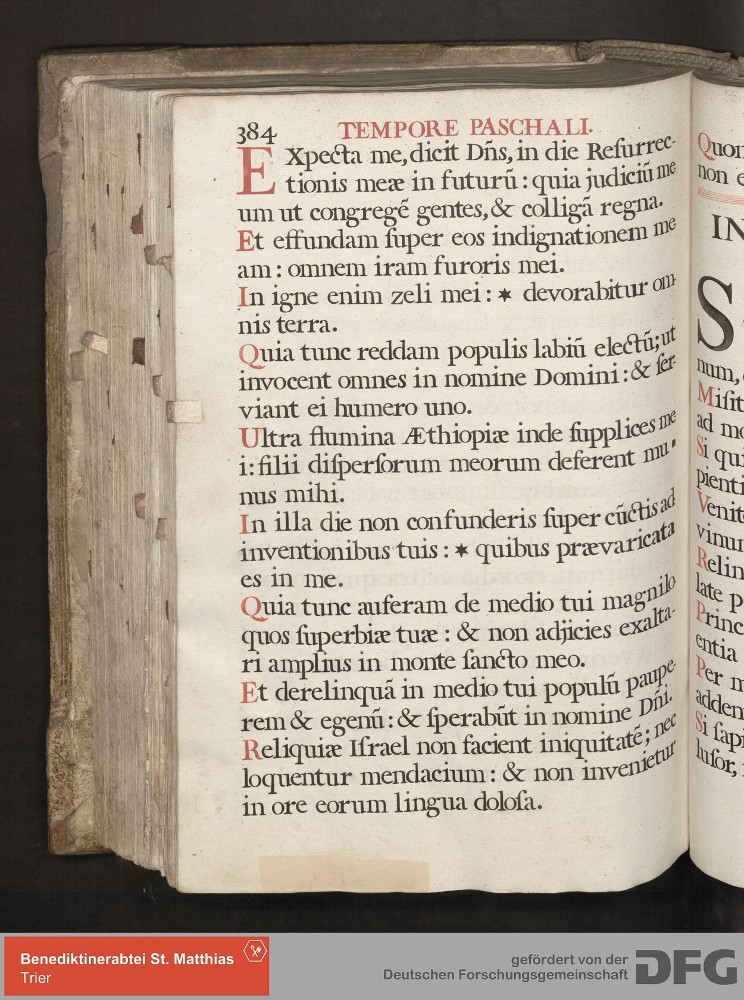 384 TEMPORE PASCHALI.
EXpecta me, dicit Dñs, in die Reſurrec-
tionis meæ in futurũ : quia judiciũ me
um ut congregẽ gentes, & colligã regna.
Et effundam ſuper eos indignationem me
am : omnem iram furoris mei.
In igne enim zeli mei : ✶ devorabitur om
nis terra.
Quia tunc reddam populis labiũ electũ; ut
invocent omnes in nomine Domini : & ſer-
viant ei humero uno.
Ultra flumina Æthiopiæ inde ſupplices me
i : filii diſperſorum meorum deferent mu-
nus mihi.
In illa die non confunderis ſuper cũctis ad
inventionibus tuis : ✶ quibus prævaricata
es in me.
Quia tunc auferam de medio tui magnilo
quos ſuperbiæ tuæ : & non adjicies exalta-
ri amplius in monte ſancto meo.
Et derelinquã in medio tui populũ paupe-
rem & egenũ : & ſperabũt in nomine Dñi.
Reliquiæ Iſrael non facient iniquitatẽ ; nec
loquentur mendacium : & non invenietur
in ore eorum lingua doloſa.
Quon
non e
IN
S
num,
Miſit
ad mo
Si qui
pienti
Venit
vinum
Relin
late p
Princ
entia
Per m
adden
Si ſapi
luſor,
Benediktinerabtei St. Matthias
Trier
gefördert von der
Deutschen Forschungsgemeinschaft
DFG